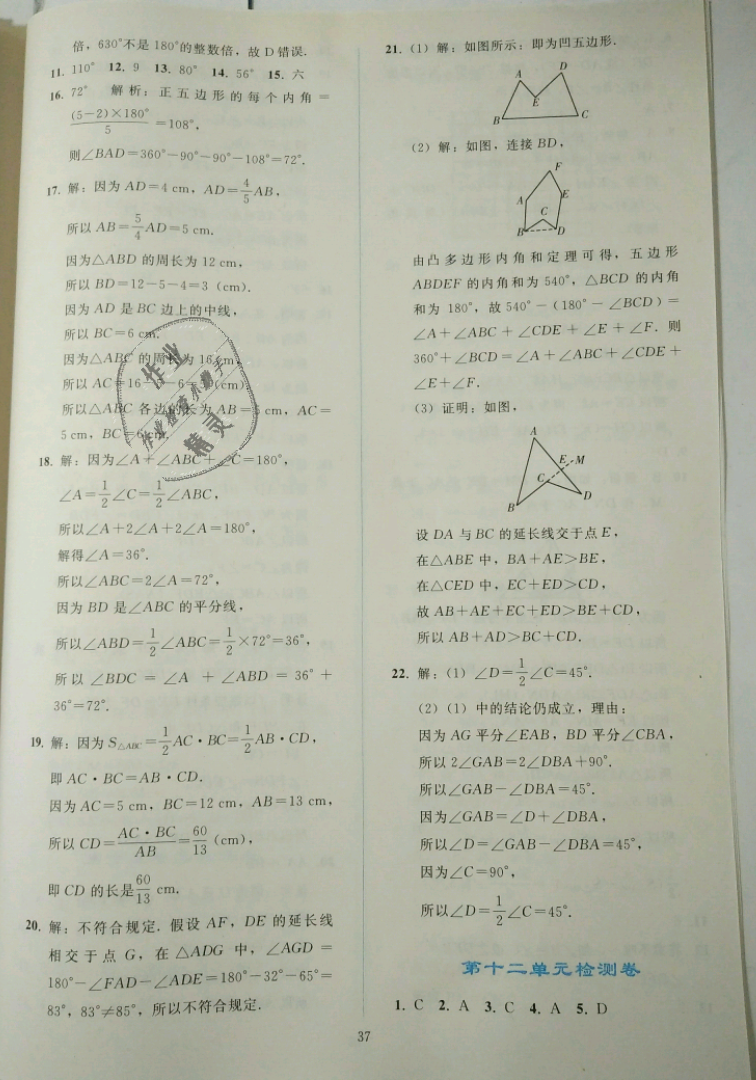 倍，630°不是 180°的整数倍，故 D 错误.
11. 110° 12. 9 13. 80° 14. 56° 15. 六
16. 72° 解析：正五边形的每个内角＝
(5－2)×180°/5 ＝108°，
则∠BAD＝360°－90°－90°－108°＝72°.
17. 解：因为 AD＝4 cm，AD＝4/5 AB，
所以 AB＝5/4 AD＝5 cm.
因为△ABD 的周长为 12 cm，
所以 BD＝12－5－4＝3（cm）.
因为 AD 是 BC 边上的中线，
所以 BC＝6 cm.
因为△ABC 的周长为 16 cm，
所以 AC＝16－ －6＝ （cm）.
所以△ABC 各边的长为 AB＝5 cm，AC＝
5 cm，BC＝6 cm.
18. 解：因为∠A＋∠ABC＋∠C＝180°，
∠A＝1/2∠C＝1/2∠ABC，
所以∠A＋2∠A＋2∠A＝180°，
解得∠A＝36°.
所以∠ABC＝2∠A＝72°，
因为 BD 是∠ABC 的平分线，
所以∠ABD＝1/2∠ABC＝1/2×72°＝36°，
所以 ∠BDC ＝ ∠A ＋ ∠ABD ＝ 36° ＋
36°＝72°.
19. 解：因为 S△ABC＝1/2 AC·BC＝1/2 AB·CD，
即 AC·BC＝AB·CD.
因为 AC＝5 cm，BC＝12 cm，AB＝13 cm，
所以 CD＝AC·BC/AB＝60/13（cm），
即 CD 的长是60/13 cm.
20. 解：不符合规定. 假设 AF，DE 的延长线
相交于点 G，在 △ADG 中，∠AGD ＝
180°－∠FAD－∠ADE＝180°－32°－65°＝
83°，83°≠85°，所以不符合规定.
作业
作业检查小助手
精灵
21.（1）解：如图所示：即为凹五边形.
D
A
E
B
C
（2）解：如图，连接 BD，
F
A
E
C
B
D
由凸多边形内角和定理可得，五边形
ABDEF 的内角和为 540°，△BCD 的内角
和为 180°，故 540°－（180°－∠BCD）＝
∠A＋∠ABC＋∠CDE＋∠E＋∠F. 则
360°＋∠BCD＝∠A＋∠ABC＋∠CDE＋
∠E＋∠F.
（3）证明：如图，
A
E
M
C
D
B
设 DA 与 BC 的延长线交于点 E，
在△ABE 中，BA＋AE＞BE，
在△CED 中，EC＋ED＞CD，
故 AB＋AE＋EC＋ED＞BE＋CD，
所以 AB＋AD＞BC＋CD.
22. 解：（1）∠D＝1/2∠C＝45°.
（2）（1）中的结论仍成立，理由：
因为 AG 平分∠EAB，BD 平分∠CBA，
所以 2∠GAB＝2∠DBA＋90°.
所以∠GAB－∠DBA＝45°.
因为∠GAB＝∠D＋∠DBA，
所以∠D＝∠GAB－∠DBA＝45°，
因为∠C＝90°，
所以∠D＝1/2∠C＝45°.
第十二单元检测卷
1. C 2. A 3. C 4. A 5. D
37